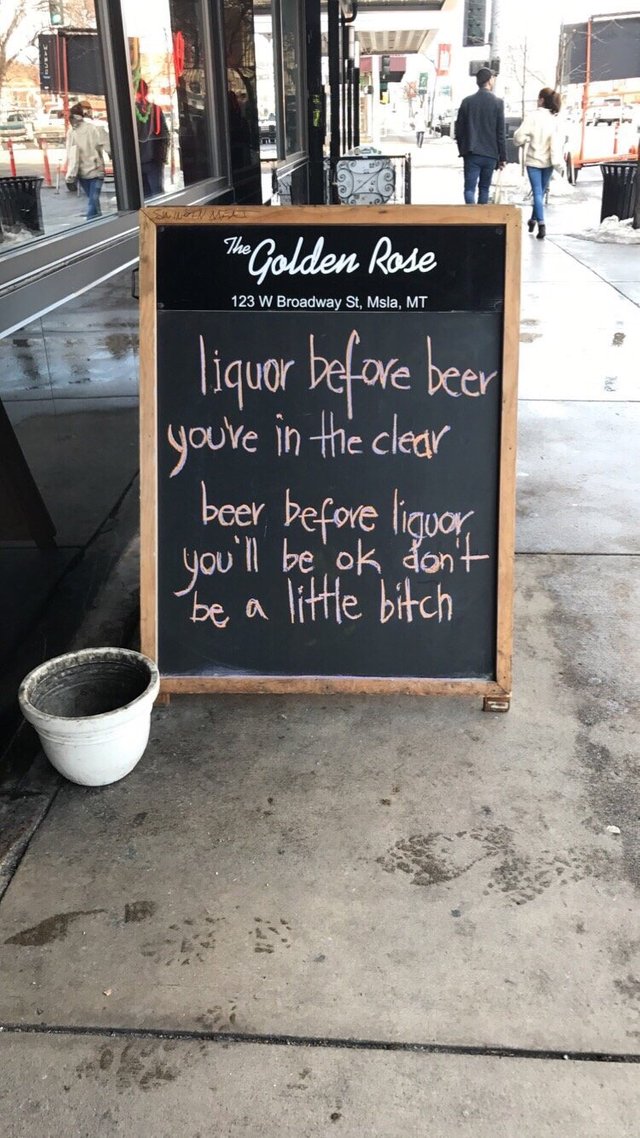 The Golden Rose
123 W Broadway St, Msla, MT
liquor before beer
you're in the clear
beer before liquor
you'll be ok don't
be a little bitch